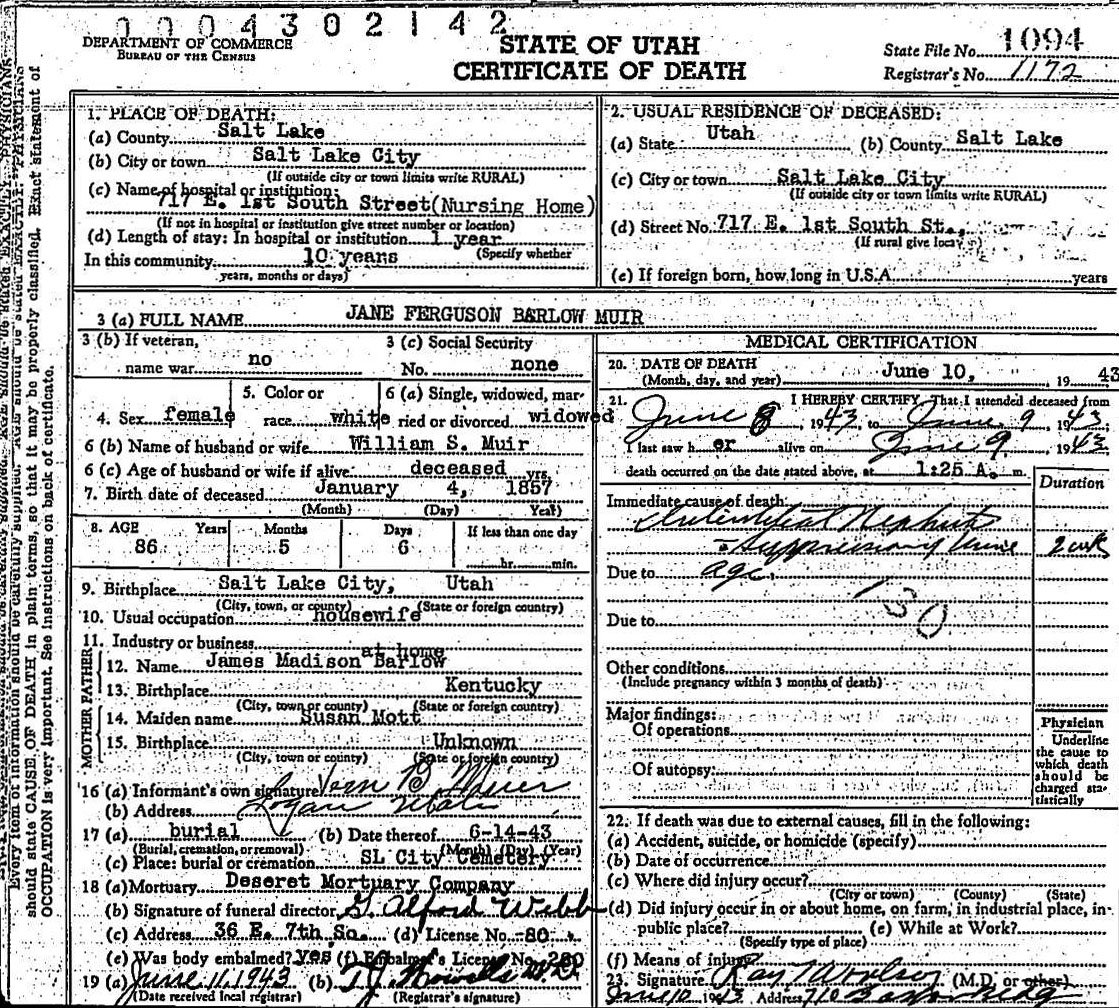 0004302142
DEPARTMENT OF COMMERCE
BUREAU OF THE CENSUS
STATE OF UTAH
CERTIFICATE OF DEATH
State File No. 1094
Registrar's No. 1172
Every item of information should be carefully supplied. AGE should be stated EXACTLY. PHYSICIANS
should state CAUSE OF DEATH in plain terms, so that it may be properly classified. Exact statement of
OCCUPATION is very important. See instructions on back of certificate.
1. PLACE OF DEATH:
(a) County Salt Lake
(b) City or town Salt Lake City
(If outside city or town limits write RURAL)
(c) Name of hospital or institution:
717 E. 1st South Street(Nursing Home)
(If not in hospital or institution give street number or location)
(d) Length of stay: In hospital or institution 1 year
(Specify whether
In this community 10 years
years, months or days)
2. USUAL RESIDENCE OF DECEASED:
(a) State Utah (b) County Salt Lake
(c) City or town Salt Lake City
(If outside city or town limits write RURAL)
(d) Street No. 717 E. 1st South St.,
(If rural give location)
(e) If foreign born, how long in U.S.A. years
3 (a) FULL NAME JANE FERGUSON BARLOW MUIR
3 (b) If veteran,
name war no
3 (c) Social Security
No. none
4. Sex female
5. Color or
race white
6 (a) Single, widowed, mar-
ried or divorced widowed
6 (b) Name of husband or wife William S. Muir
6 (c) Age of husband or wife if alive deceased yrs.
7. Birth date of deceased January 4, 1857
(Month) (Day) Year)
8. AGE Years Months Days If less than one day
86 5 6 hr. min.
9. Birthplace Salt Lake City, Utah
(City, town, or county) (State or foreign country)
10. Usual occupation housewife
11. Industry or business at home
FATHER
12. Name James Madison Barlow
13. Birthplace Kentucky
(City, town or county) (State or foreign country)
MOTHER
14. Maiden name Susan Mott
15. Birthplace Unknown
(City, town or county) (State or foreign country)
16 (a) Informant's own signature Vern B. Muir
(b) Address Logan Utah
17 (a) burial (b) Date thereof 6-14-43
(Burial, cremation, or removal) (Month) (Day) (Year)
(c) Place: burial or cremation SL City Cemetery
18 (a) Mortuary Deseret Mortuary Company
(b) Signature of funeral director G. Alford Webb
(c) Address 36 E. 7th So. (d) License No. 80
(e) Was body embalmed? yes (f) Embalmer's License No. 280
19 (a) June 11, 1943 (b) T.J. Howells M.D.
(Date received local registrar) (Registrar's signature)
MEDICAL CERTIFICATION
20. DATE OF DEATH
(Month, day, and year) June 10, 19 43
21. I HEREBY CERTIFY, That I attended deceased from
June 8, 1943, to June 9 1943
I last saw h er alive on June 9 1943
death occurred on the date stated above, at 1:25 A. m.
Duration
Immediate cause of death:
Interstitial Nephritis
Suppression of Urine 2 wk
Due to age.
130
Due to
Other conditions
(Include pregnancy within 3 months of death)
Major findings:
Of operations
Of autopsy:
Physician
Underline
the cause to
which death
should be
charged sta-
tistically
22. If death was due to external causes, fill in the following:
(a) Accident, suicide, or homicide (specify)
(b) Date of occurrence
(c) Where did injury occur?
(City or town) (County) (State)
(d) Did injury occur in or about home, on farm, in industrial place, in
public place? (e) While at Work?
(Specify type of place)
(f) Means of injury?
23. Signature Ray T Woolsey (M.D. or other)
June 10 1943 Address